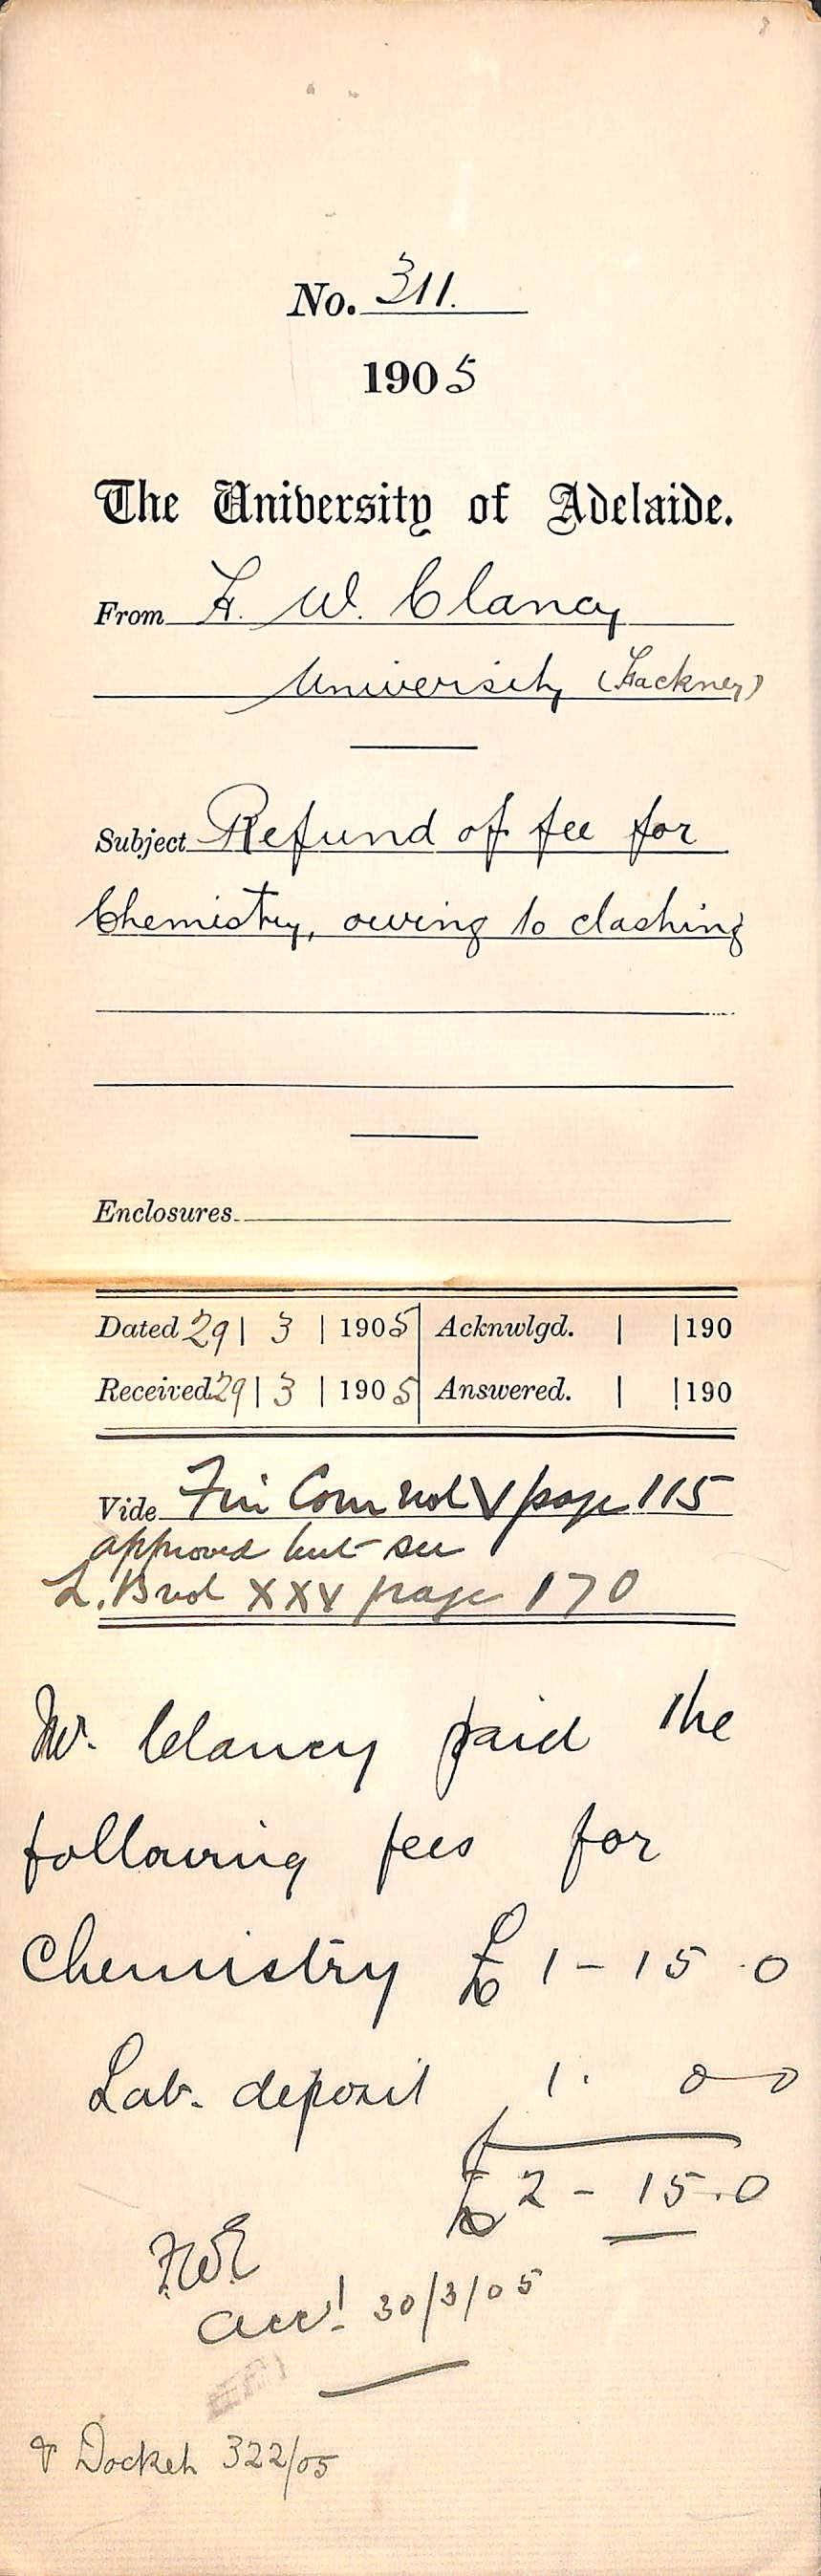 No. 311.
1905
The University of Adelaide.
From F. W. Clancy
University (Hackney)
Subject Refund of fee for
Chemistry, owing to clashing
Enclosures
Dated 29 | 3 | 1905 | Acknwlgd. | | 190
Received 29 | 3 | 1905 | Answered. | | 190
Vide Fin Com vol V page 115
approved but see
L.B vol XXV page 170
Mr. Clancy paid the
following fees for
Chemistry £ 1 - 15 . 0
Lab. deposit 1 . 0 - 0
£ 2 - 15 . 0
FWE
acct 30/3/05
V Docket 322/05